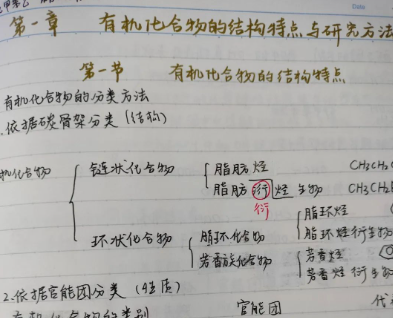 Date
第一章 有机化合物的结构特点与研究方法
第一节 有机化合物的结构特点
有机化合物的分类方法
依据碳骨架分类（结构）
机化合物
链状化合物
脂肪烃 CH₃CH₂C
脂肪衍烃生物 CH₃CH₂
衍
环状化合物
脂环化合物
脂环烃
脂环烃衍生物
芳香族化合物
芳香烃
芳香烃衍生物
2.依据官能团分类（性质）
有机化合物的类别 官能团 代